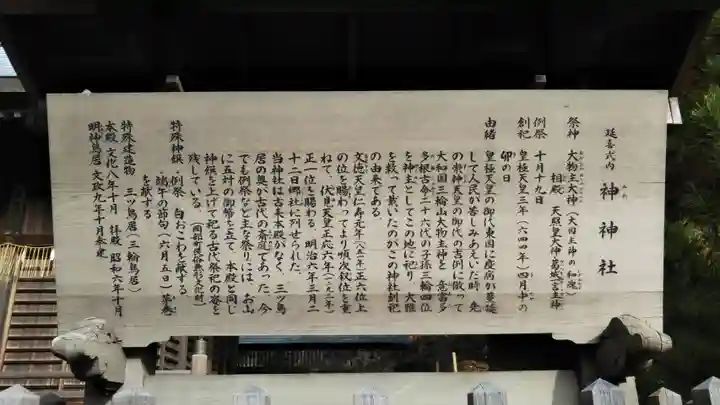 延喜式内 神神社
みわ
祭神 大物主大神（大国主神の和魂）
相殿 天照皇大神 葛城一言主神
例祭 十月十九日
創祀 皇極天皇三年（六四四年）四月中の
卯の日
由緒 皇極天皇の御代東国に疫病が蔓延
して人民が苦しみあえいだ時 免
の崇神天皇の御代の吉例に倣って
大和国三輪山大物主神と 意富多
多根古命二十六代の子孫三輪四位
を神主としてこの地に祀り 大難
を救って戴いたのがこの神社創祀
の由来である。
文徳天皇仁寿元年（八五一年）正六位上
の位を賜わってより順次叙位を重
ねて、伏見天皇正応六年（一二九三年）
正一位を賜わる。明治六年三月二
十二日郷社に列せられた。
当神社は古来本殿がなく、三ツ鳥
居の奥が古代の斎庭であった。今
でも例祭など主な祭りには、お山
に五封の御幣を立て 本殿と同じ
神饌を上げて祀る古代祭祀の姿を
残している。（岡部町民俗無形文化財）
特殊神饌 例祭 白おこわを献ずる
端午の節句（六月五日）茅巻
を献ずる
特殊建造物 三ツ鳥居（三輪鳥居）
本殿 文化八年十月 拝殿 昭和六年十月
明神鳥居 文政九年十月奉建